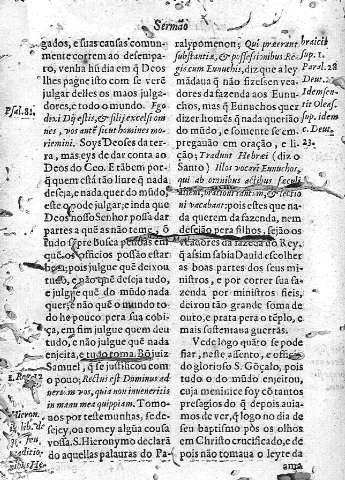 Sermão
gados, e suas causas comun-
mente correm ao desempa-
ro, venha hũ dia em q̃ Deos
lhes pagne isto com se verẽ
julgar delles os maos julga-
dores, e todo o mundo. Ego
dixi Dij estis, & filij excelsi om-
nes, vos autẽ sicut homines mo-
riemini. Soys Deoses da ter-
ra, mas eys de dar conta ao
Deos do Ceo. E tãbem por-
q̃ quem está tão liure q̃ nada
deseja, e nada quer do mũdo,
este o pode julgar; e inda que
Deos nosso Senhor possa dar
partes a quẽ as não tem, com
tudo Busca pessoas em
quẽ os officios possão estar
bem; pois julgue quẽ deixou
tudo, e não quẽ deseja tudo,
e julgue quẽ do mũdo nada
quer, e não quẽ o mundo to-
do he pouco pera sua cobi-
ça, em fim julgue quem deu
tudo, e não julgue quẽ nada
enjeita, e tudo toma. Bõ juiz
Samuel, q̃ se justificou com
o pouo; Rectus est Dominus ad-
uersum vos, quia non inueneritis
in manu mea quippiam. Tomo-
nos por testemunhas, se de-
sejey, ou tomey algũa cousa
vossa. S. Hieronymo declarã
do aquellas palauras do Pa-
Psal. 81.
1. Reg. 12
Hieron.
lib. de
seu
traditio-
nibus He-
ralypomenon; Qui præerant
substantiæ, & possessionibus Re-
gis cum Eunuchis, diz que a ley
mãdaua q̃ não fizessem vea-
dores da fazenda aos Eunu-
chos, mas q̃ Eunuchos quer
dizer homẽs q̃ nada querião
do mũdo, e somente se em-
pregauão em oração, e li-
ção; Tradunt Hebrei (diz o
Santo) Illos vocari Eunuchos,
qui ab omnibus actibus sæculi
alieni, orationi tantum, & lectio
ni vacabant: pois estes que na-
da querem da fazenda, nem
desejão pera filhos, sejão os
veadores da fazẽda do Rey,
q̃ assim sabia Dauid escolher
as boas partes dos seus mi-
nistros, e por correr sua fa-
zenda por ministros fieis,
deixou tão grande soma de
outo, e prata pera o tẽplo, e
mais sostentaua guerras.
Vede logo quão se pode
fiar, neste assento, o officio
do glorioso S. Gõçalo, pois
tudo o do mũdo enjeitou,
cuja meninice foy cõ tantos
presagios do q̃ depois auia-
mos de ver, q̃ logo no dia de
seu baptismo pòs os olhos
em Christo crucificado, e de
pois não tomaua o leyte da
ama
braicis
sup. 1.
Paral. 28
Deut.
Idem sen-
tit Oleas.
sup. idem
c. Deut.
23.